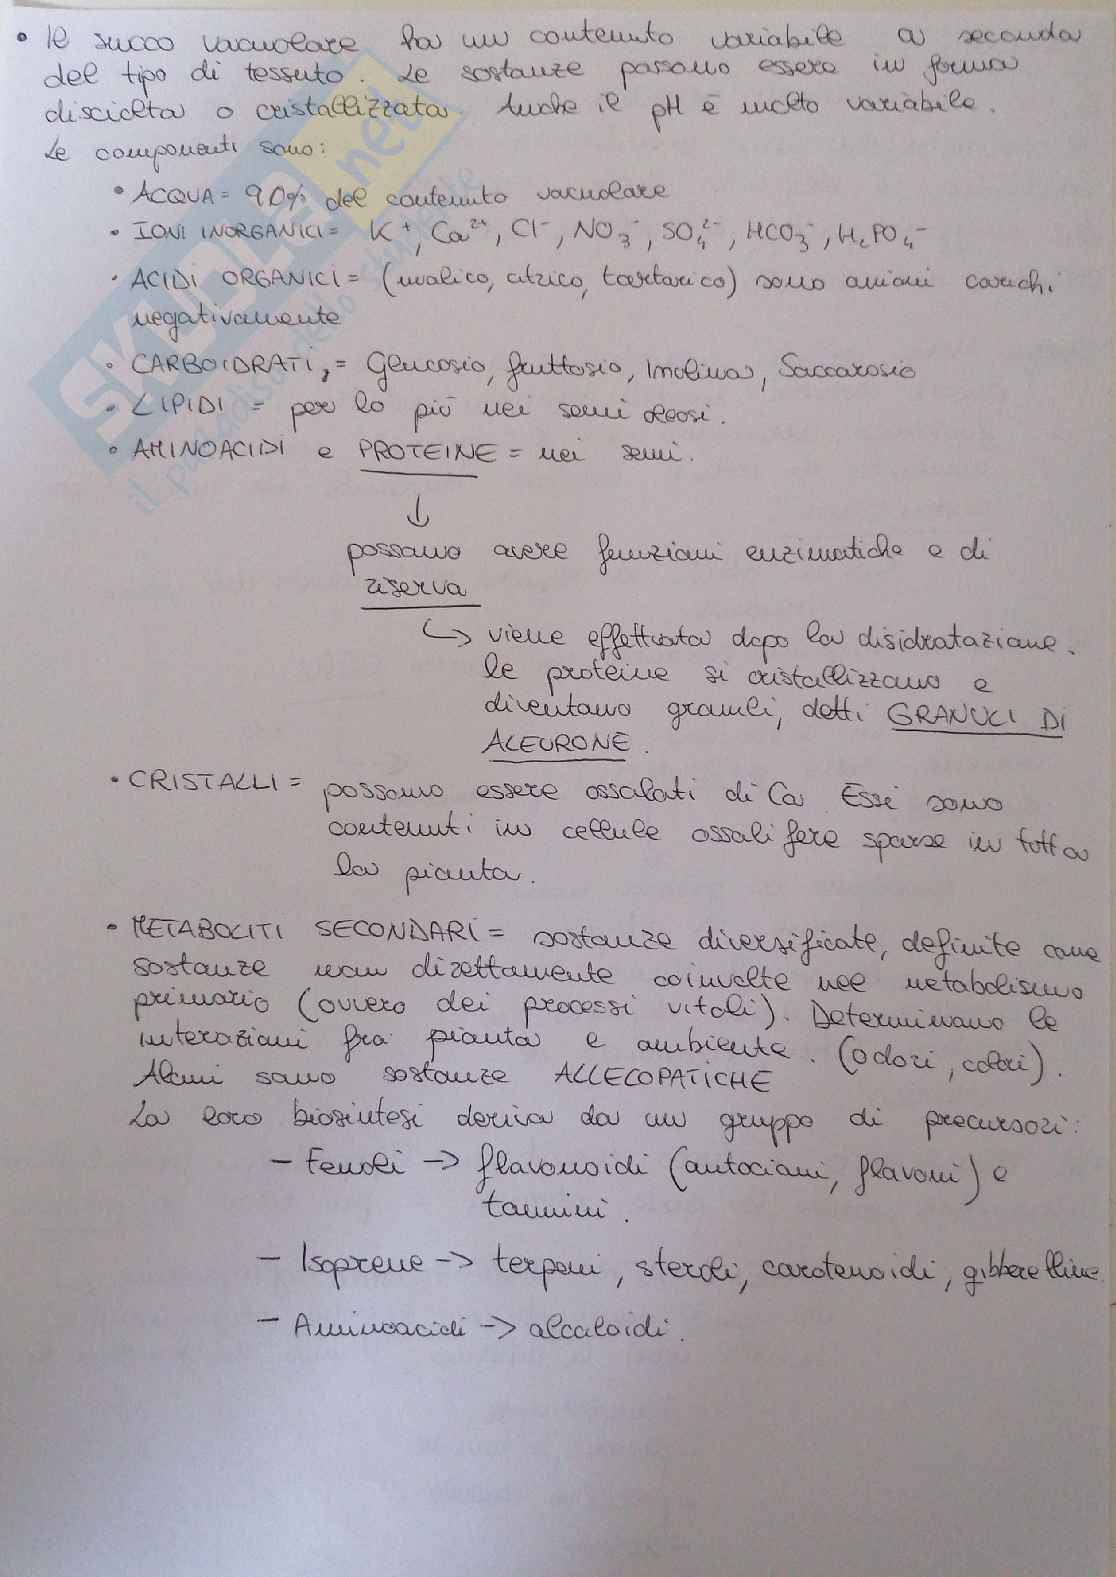 • Il succo vacuolare ha un contenuto variabile a seconda
del tipo di tessuto. Le sostanze possono essere in forma
disciolta o cristallizzata. Anche il pH è molto variabile.
Le componenti sono:
• ACQUA = 90% del contenuto vacuolare
• IONI INORGANICI = K⁺, Ca²⁺, Cl⁻, NO₃⁻, SO₄²⁻, HCO₃⁻, H₂PO₄⁻
• ACIDI ORGANICI = (malico, citrico, tartarico) sono anioni carichi
negativamente
• CARBOIDRATI, = Glucosio, fruttosio, Inulina, Saccarosio
• LIPIDI = per lo più nei semi oleosi.
• AMINOACIDI e PROTEINE = nei semi.
↓
possono avere funzioni enzimatiche e di
riserva
↳ viene effettuata dopo la disidratazione.
le proteine si cristallizzano e
diventano granuli, detti GRANULI DI
ALEURONE.
• CRISTALLI = possono essere ossalati di Ca. Essi sono
contenuti in cellule ossalifere sparse in tutta
la pianta.
• METABOLITI SECONDARI = sostanze diversificate, definite come
sostanze non direttamente coinvolte nel metabolismo
primario (ovvero dei processi vitali). Determinano le
interazioni fra pianta e ambiente. (odori, colori).
Alcuni sono sostanze ALLELOPATICHE
La loro biosintesi deriva da un gruppo di precursori:
– Fenoli → flavonoidi (antociani, flavoni) e
tannini.
– Isoprene → terpeni, steroli, carotenoidi, gibberelline.
– Aminoacidi → alcaloidi.
SKUOLA.net
il paradiso dello studente